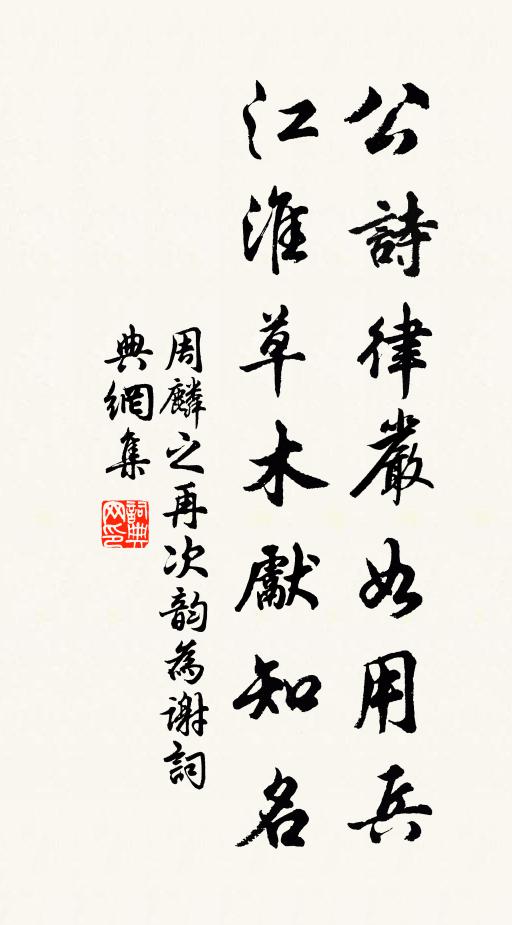 公詩律嚴如用兵
江淮草木獻知名
周麟之再次韵為謝詞
典網集
詞典
网印